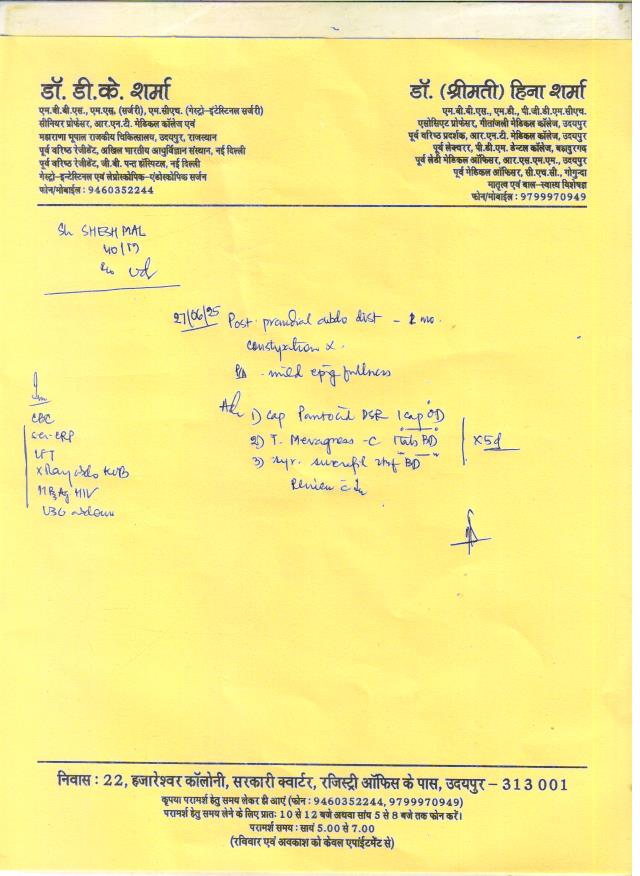 डॉ. डी.के. शर्मा
एम.बी.बी.एस., एम.एस. (सर्जरी), एम.सीएच. (गेस्ट्रो-इंटेस्टिनल सर्जरी)
सीनियर प्रोफेसर, आर.एन.टी. मेडिकल कॉलेज एवं
महाराणा भूपाल राजकीय चिकित्सालय, उदयपुर, राजस्थान
पूर्व वरिष्ठ रेजीडेंट, अखिल भारतीय आयुर्विज्ञान संस्थान, नई दिल्ली
पूर्व वरिष्ठ रेजीडेंट, जी.बी. पन्त हॉस्पिटल, नई दिल्ली
गेस्ट्रो-इन्टेस्टिनल एवं लेप्रोस्कोपिक-एंडोस्कोपिक सर्जन
फोन/मोबाईल : 9460352244
डॉ. (श्रीमती) हिना शर्मा
एम.बी.बी.एस., एम.डी., पी.जी.डी.एम.सीएच.
एसोसिएट प्रोफेसर, गीतांजली मेडिकल कॉलेज, उदयपुर
पूर्व वरिष्ठ प्रदर्शक, आर.एन.टी. मेडिकल कॉलेज, उदयपुर
पूर्व लेक्चरर, पी.डी.एम. डेन्टल कॉलेज, बहादुरगढ़
पूर्व लेडी मेडिकल ऑफिसर, आर.एस.एम.एम., उदयपुर
पूर्व मेडिकल ऑफिसर, सी.एच.सी., गोगुन्दा
मातृत्व एवं बाल-स्वास्थ्य विशेषज्ञ
फोन/मोबाईल : 9799970949
Sh SHESHMAL
40/M
27/06/25 Post prandial abdo dist -
constipation x.
P/A - mild epig fullness
Adv 1) cap Pantocid DSR 1cap OD
2) T. -C 1tab BD
3) syr. sucrafil 2tsf BD
x5d
Review c
Inv
CBC
CRP
LFT
X Ray abdo KUB
HBsAg HIV
USG abdomen
निवास : 22, हजारेश्वर कॉलोनी, सरकारी क्वार्टर, रजिस्ट्री ऑफिस के पास, उदयपुर – 313 001
कृपया परामर्श हेतु समय लेकर ही आएं (फोन : 9460352244, 9799970949)
परामर्श हेतु समय लेने के लिए प्रातः 10 से 12 बजे अथवा सांय 5 से 8 बजे तक फोन करें।
परामर्श समय : सायं 5.00 से 7.00
(रविवार एवं अवकाश को केवल एपाईंटमेंट से)